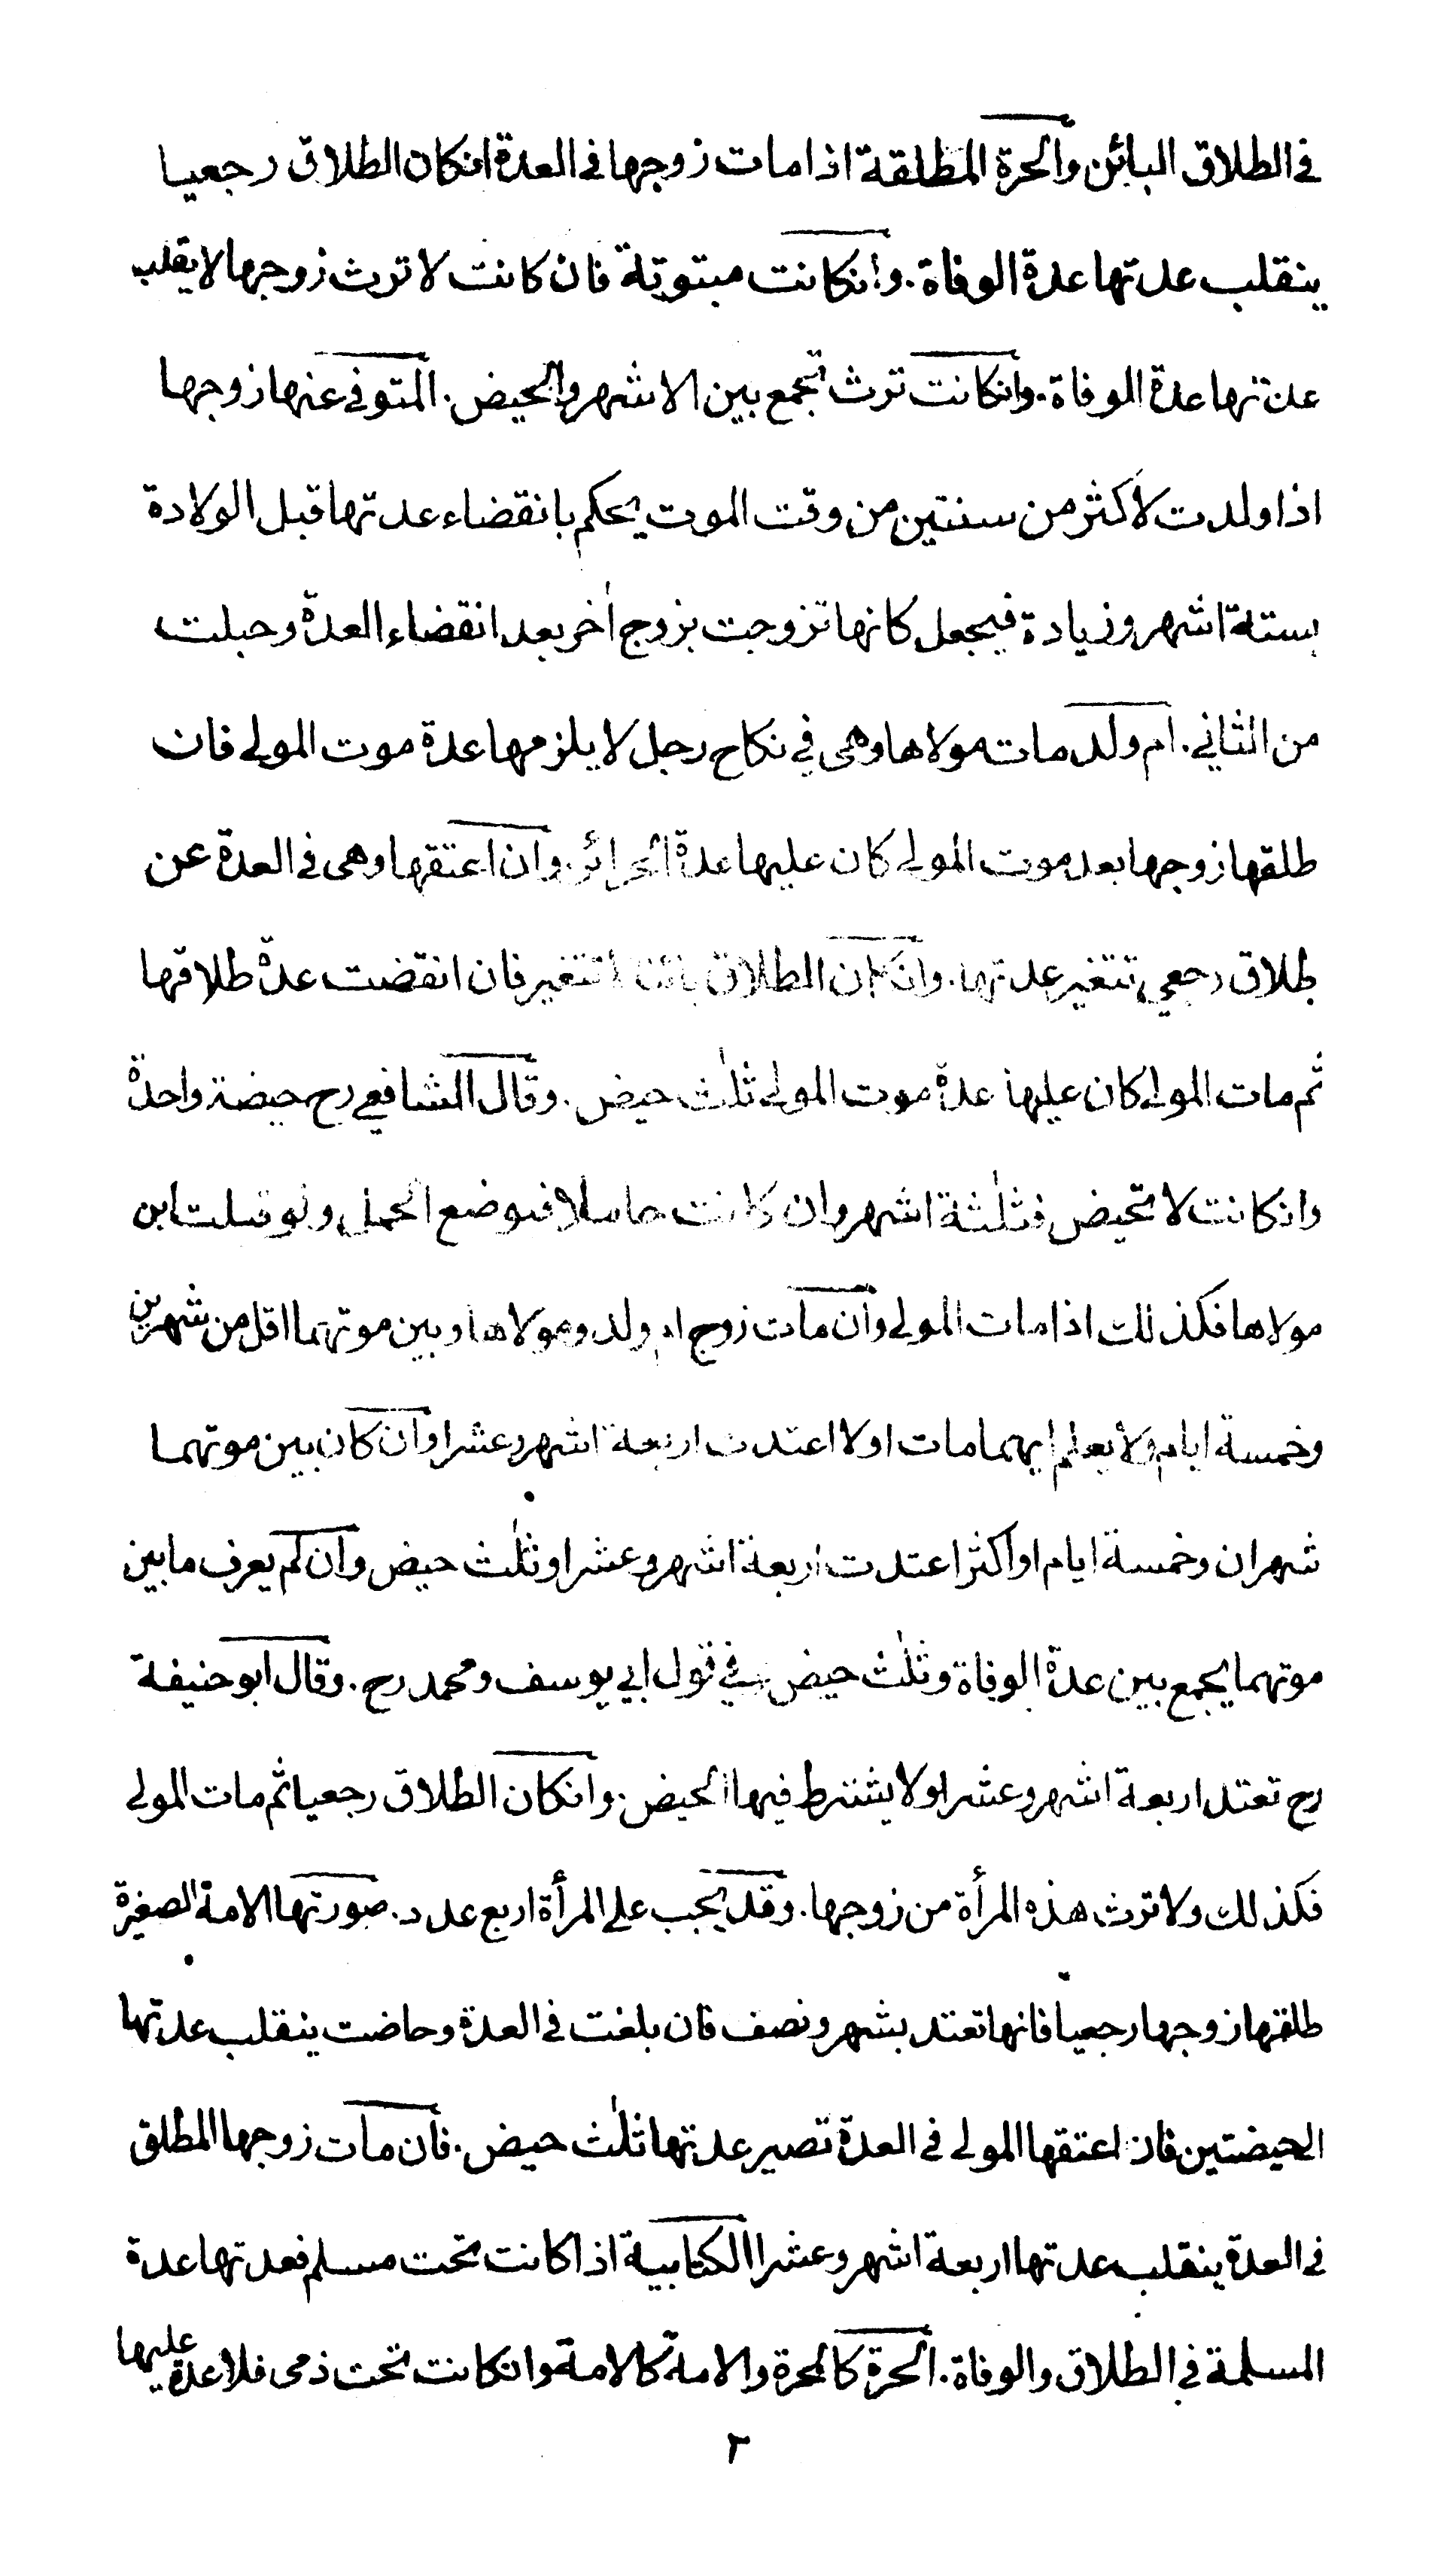 في الطلاق البائن والحرة المطلقة اذا مات زوجها في العدة انكان الطلاق رجعيا
ينقلب عدتها عدة الوفاة. وانكانت مبتوتة فان كانت لا ترث زوجها لا يقلب
عدتها عدة الوفاة. وانكانت ترث تجمع بين الاشهر والحيض. المتوفى عنها زوجها
اذا ولدت لأكثر من سنتين من وقت الموت يحكم بانقضاء عدتها قبل الولادة
بستة اشهر وزيادة فيجعل كانها تزوجت بزوج اٰخر بعد انقضاء العدة وحبلت
من الثاني. ام ولد مات مولاها وهي في نكاح رجل لا يلزمها عدة موت المولى فان
طلقها زوجها بعد موت المولى كان عليها عدة الحرائر. وان اعتقها وهي في العدة عن
طلاق رجعي تتغير عدتها. وانكان الطلاق بائنا لا تتغير فان انقضت عدة طلاقها
ثم مات المولى كان عليها عدة موت المولى ثلٰث حيض. وقال الشافعي رح حيضة واحدة
وانكانت لا تحيض فثلٰثة اشهر وان كانت حاملا فبوضع الحمل ولو قبلت ابن
مولاها فكذلك اذا مات المولى وان مات زوج ام ولد ومولاها وبين موتهما اقل من شهرين
وخمسة ايام ولا يعلم ايهما مات اولا اعتدت اربعة اشهر وعشرا وان كان بين موتهما
شهران وخمسة ايام او اكثر اعتدت اربعة اشهر وعشرا وثلٰث حيض وان لم يعرف ما بين
موتهما يجمع بين عدة الوفاة وثلٰث حيض في قول ابي يوسف ومحمد رح. وقال ابو حنيفة
رح تعتد اربعة اشهر وعشرا ولا يشترط فيها الحيض. وانكان الطلاق رجعيا ثم مات المولى
فكذلك ولا ترث هذه المرأة من زوجها. وقد يجب على المرأة اربع عدد. صورتها الامة الصغيرة
طلقها زوجها رجعيا فانها تعتد بشهر ونصف فان بلغت في العدة وحاضت ينقلب عدتها
الحيضتين فان اعتقها المولى في العدة تصير عدتها ثلٰث حيض. فان مات زوجها المطلق
في العدة ينقلب عدتها اربعة اشهر وعشرا الكتابية اذا كانت تحت مسلم فعدتها عدة
المسلمة في الطلاق والوفاة. الحرة كالحرة والامة كالامة وانكانت تحت ذمى فلا عدة عليها
٢